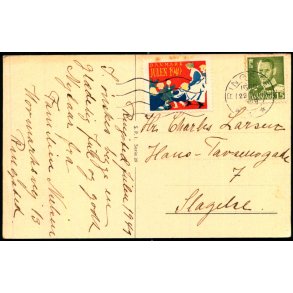 Ringsted Julen 1949
I ønskes begge en
glædelig Jul og godt
Nytaar fra
Familien Nielsen
Nørremarksvej 13
Ringsted
S.R.I.
DANMARK
JULEN 1949
Hr. Charles Larsen
Hans-Tavsensgade
7
Slagelse
15